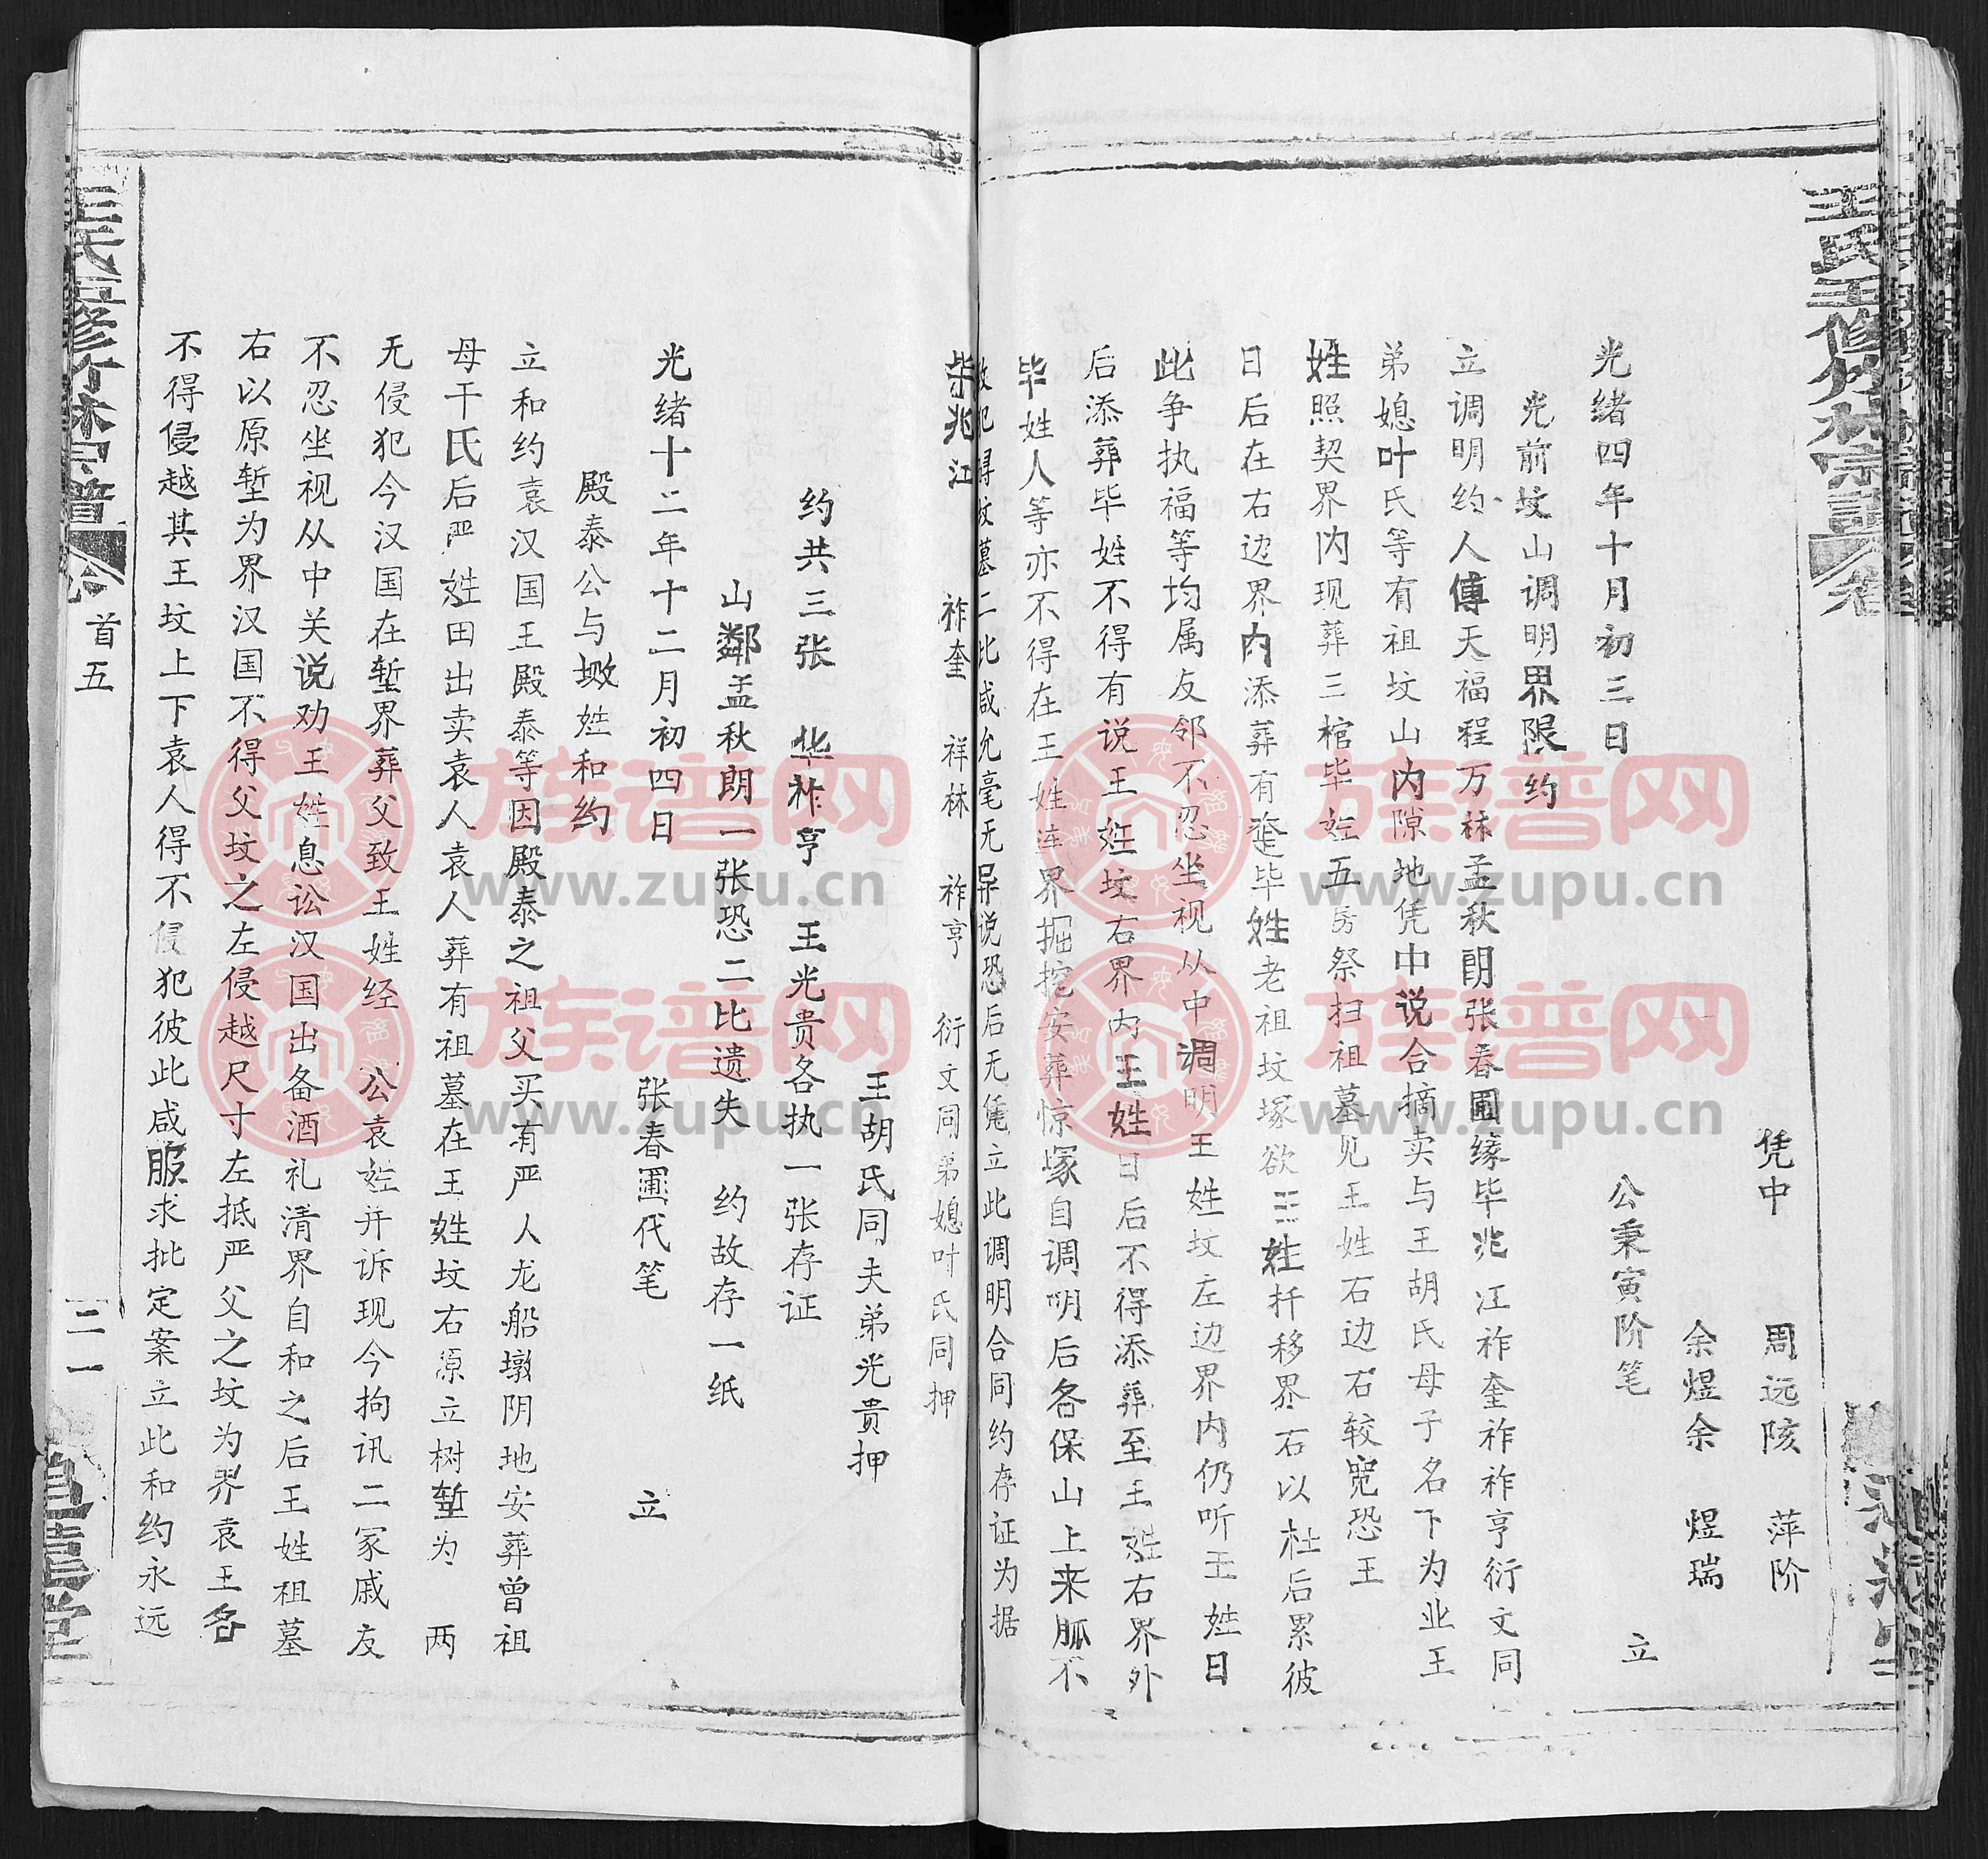 凭中 周远陔 萍阶
余煜余 煜瑞
公秉寅阶笔 立
光绪四年十月初三日
光前坟山调明界限约
立调明约人傅天福程万林孟秋朗张春圃缘毕兆江祚奎祚祚亨衍文同
弟媳叶氏等有祖坟山内隙地凭中说合摘卖与王胡氏母子名下为业王
姓照契界内现葬三棺毕姓五房祭扫祖墓见王姓右边右较宽恐王
日后在右边界内添葬有毕姓老祖坟塚欲王姓扦移界石以杜后累彼
此争执福等均属友邻不忍坐视从中调明王姓坟左边界内仍听王姓日
后添葬毕姓不得有说王姓坟右界内王姓日后不得添葬至王姓右界外
毕姓人等亦不得在王姓连界掘挖安葬惊塚自调明后各保山上来脈不
犯得坟墓二比咸允毫无异说恐后无凭立此调明合同约存证为据
兆江 祚奎 祥林 祚亨 衍文同弟媳叶氏同押
王胡氏同夫弟光贵押
约共三张 华祚亨 王光贵各执一张存证
山鄰孟秋朗一张恐二比遗失 约故存一纸
光绪十二年十二月初四日 张春圃代笔 立
殿泰公与姓和约
立和约袁汉国王殿泰等因殿泰之祖父买有严人龙船墩阴地安葬曾祖
母干氏后严姓田出卖袁人袁人葬有祖墓在王姓坟右原立树堑为 两
无侵犯今汉国在堑界葬父致王姓经 公袁姓并诉现今拘讯二家戚友
不忍坐视从中关说劝王姓息讼汉国出备酒礼清界自和之后王姓祖墓
右以原堑为界汉国不得父坟之左侵越尺寸左抵严父之坟为界袁王各
不得侵越其王坟上下袁人得不侵犯彼此咸服求批定案立此和约永远
首五
三一
王氏五修竹林宗谱
王氏五修竹林宗谱 卷
族谱网
www.zupu.cn
族谱网
www.zupu.cn
族谱网
www.zupu.cn
族谱网
www.zupu.cn